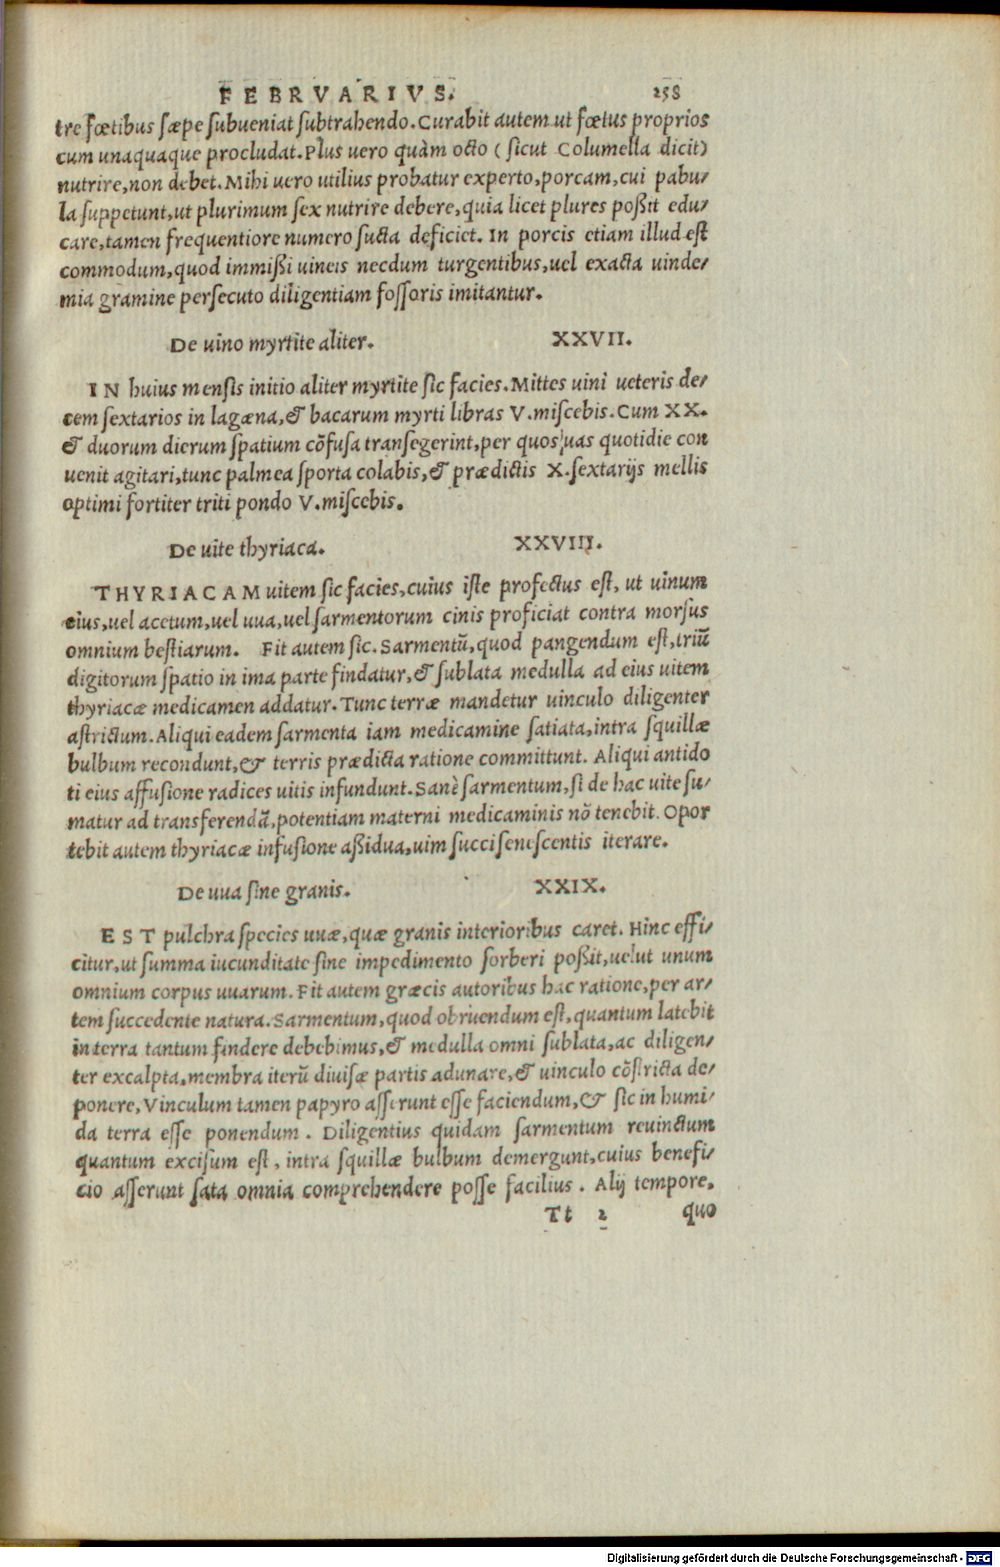 FEBRVARIVS. 258
tre fœtibus sæpe subueniat subtrahendo. Curabit autem ut fœtus proprios
cum unaquaque procludat. Plus uero quàm octo ( sicut Columella dicit)
nutrire, non debet. Mihi uero utilius probatur experto, porcam, cui pabu/
la suppetunt, ut plurimum sex nutrire debere, quia licet plures poßit edu/
care, tamen frequentiore numero sucta deficiet. In porcis etiam illud est
commodum, quod immißi uineis necdum turgentibus, uel exacta uinde/
mia gramine persecuto diligentiam fossoris imitantur.
De uino myrtite aliter. XXVII.
IN huius mensis initio aliter myrtite sic facies. Mittes uini ueteris de/
cem sextarios in lagæna, & bacarum myrti libras V. miscebis. Cum XX.
& duorum dierum spatium cõfusa transegerint, per quos uas quotidie con
uenit agitari, tunc palmea sporta colabis, & prædictis X. sextarijs mellis
optimi fortiter triti pondo V. miscebis.
De uite thyriaca. XXVIII.
THYRIACAM uitem sic facies, cuius iste profectus est, ut uinum
eius, uel acetum, uel uua, uel sarmentorum cinis proficiat contra morsus
omnium bestiarum. Fit autem sic. Sarmentũ, quod pangendum est, triũ
digitorum spatio in ima parte findatur, & sublata medulla ad eius uitem
thyriacæ medicamen addatur. Tunc terræ mandetur uinculo diligenter
astrictum. Aliqui eadem sarmenta iam medicamine satiata, intra squillæ
bulbum recondunt, & terris prædicta ratione committunt. Aliqui antido
ti eius affusione radices uitis infundunt. Sanè sarmentum, si de hac uite su/
matur ad transferendũ, potentiam materni medicaminis nõ tenebit. Opor
tebit autem thyriacæ infusione aßidua, uim succi senescentis iterare.
De uua sine granis. XXIX.
EST pulchra species uuæ, quæ granis interioribus caret. Hinc effi/
citur, ut summa iucunditate sine impedimento sorberi poßit, uelut unum
omnium corpus uuarum. Fit autem græcis autoribus hac ratione, per ar/
tem succedente natura. Sarmentum, quod obruendum est, quantum latebit
in terra tantum findere debebimus, & medulla omni sublata, ac diligen/
ter excalpta, membra iterũ diuisæ partis adunare, & uinculo cõstricta de/
ponere, Vinculum tamen papyro asserunt esse faciendum, & sic in humi/
da terra esse ponendum. Diligentius quidam sarmentum reuinctum
quantum excisum est, intra squillæ bulbum demergunt, cuius benefi/
cio asserunt sata omnia comprehendere posse facilius. Alij tempore,
Tt 2 quo
Digitalisierung gefördert durch die Deutsche Forschungsgemeinschaft - DFG